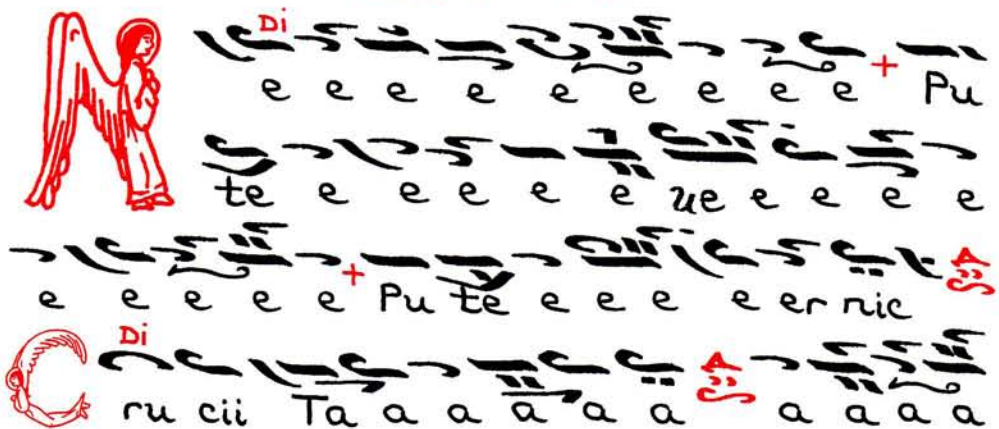 Di
N e e e e e e e e e + Pu
te e e e e e ue e e e e
e e e e e + Pu te e e e e er nic
Di
C ru cii Ta a a a a a a a a a